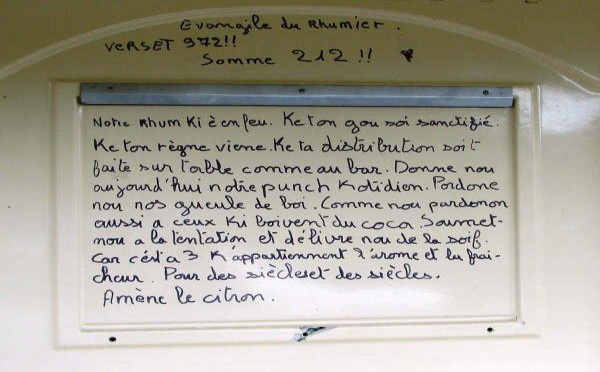 Evangile du Rhumier.
VERSET 972!!
Somme 212!!
Notre Rhum Ki è en feu. Ke ton gou soi sanctifié.
Ke ton règne viene. Ke ta distribution soit
faite sur table comme au bar. Donne nou
aujourd'hui notre punch Kotidien. Pardone
nou nos gueule de boi. Comme nou pardonon
aussi a ceux Ki boivent du coca. Soumet-
nou a la tentation et délivre nou de la soif.
Car cést a 3 K'appartiennent l'arome et la frai-
cheur. Pour des siècles et des siècles.
Amène le citron.